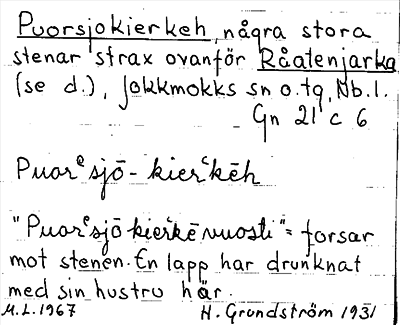 Puorsjokierkeh, några stora
stenar strax ovanför Råatenjarka
(se d.), Jokkmokks sn o. tg, Nb. l.
Gn 21 c 6
Puorᵉsjō-kierᶜkēh
"Puorᵉsjōkierkē vuosti" = forsar
mot stenen. En lapp har drunknat
med sin hustru här.
M.L. 1967 H. Grundström 1931